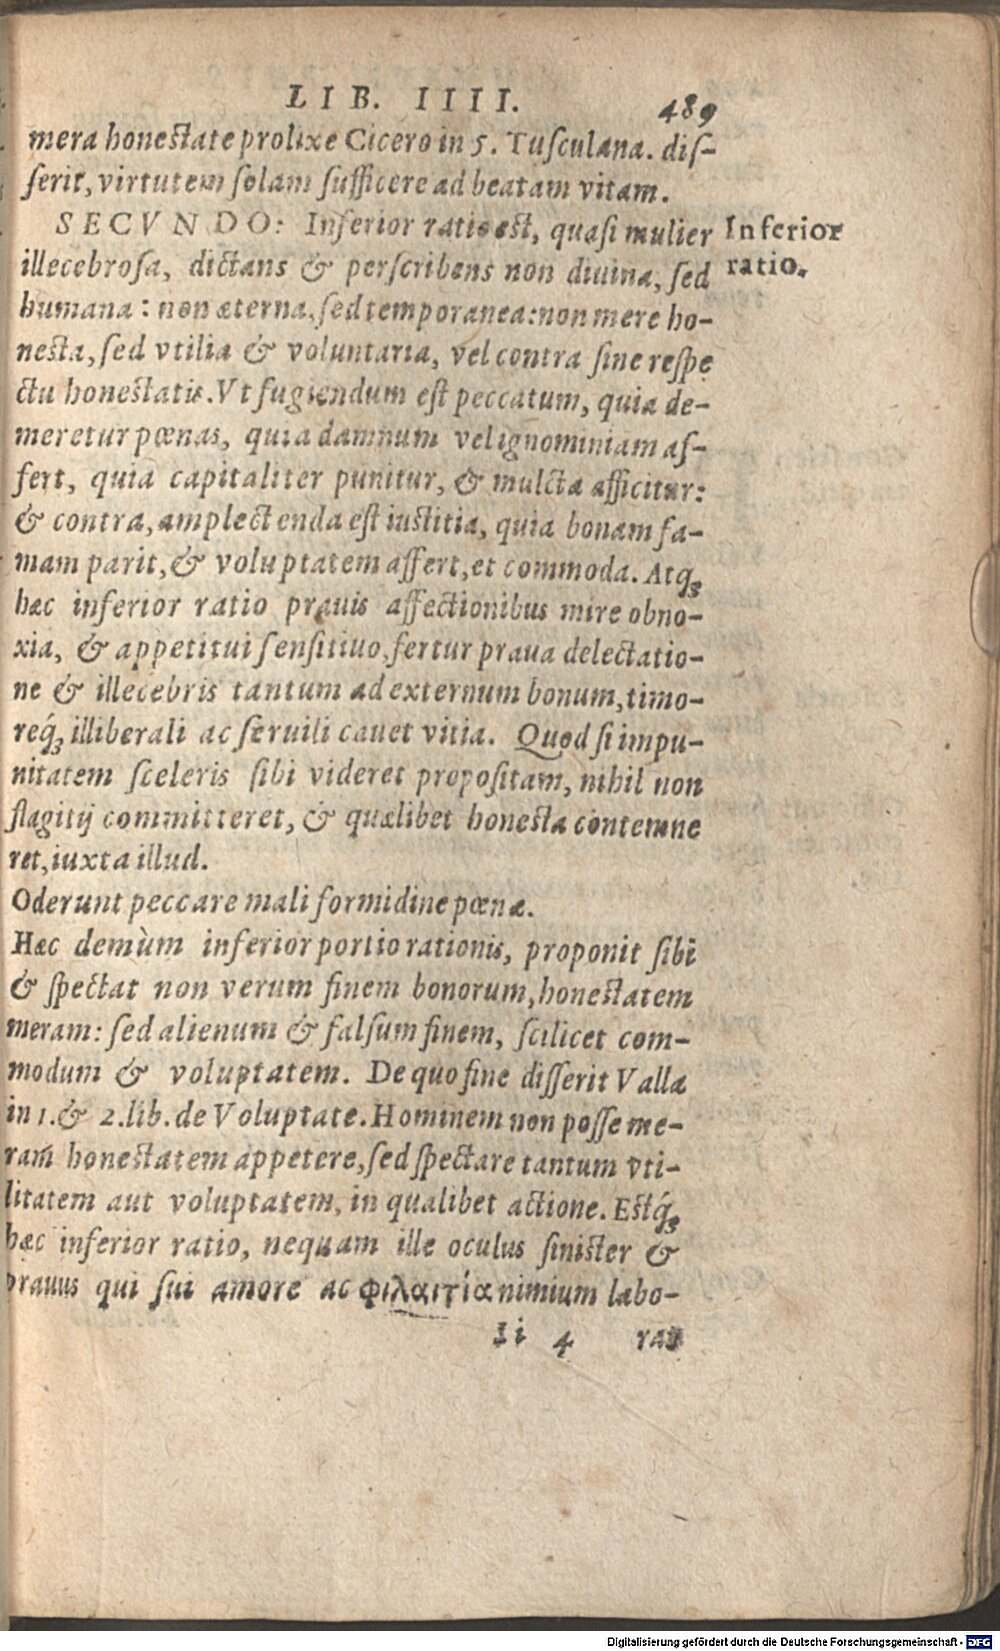 LIB. IIII. 489
mera honestate prolixe Cicero in 5. Tusculana. dis-
serit, virtutem solam sufficere ad beatam vitam.
SECVNDO: Inferior ratio est, quasi mulier
Inferior
illecebrosa, dictans & perscribens non diuina, sed
ratio.
humana: non æterna, sed temporanea: non mere ho-
nesta, sed vtilia & voluntaria, vel contra sine respe
ctu honestatis. Vt fugiendum est peccatum, quia de-
meretur pœnas, quia damnum vel ignominiam af-
fert, quia capitaliter punitur, & mulcta afficitur:
& contra, amplectenda est iustitia, quia bonam fa-
mam parit, & voluptatem affert, et commoda. Atq;
hæc inferior ratio prauis affectionibus mire obno-
xia, & appetitui sensitiuo, fertur praua delectatio-
ne & illecebris tantum ad externum bonum, timo-
req́; illiberali ac seruili cauet vitia. Quod si impu-
nitatem sceleris sibi videret propositam, nihil non
flagitij committeret, & quælibet honesta contemne
ret, iuxta illud.
Oderunt peccare mali formidine pœnæ.
Hæc demùm inferior portio rationis, proponit sibi
& spectat non verum finem bonorum, honestatem
meram: sed alienum & falsum finem, scilicet com-
modum & voluptatem. De quo fine disserit Valla
in 1. & 2. lib. de Voluptate. Hominem non posse me-
ram honestatem appetere, sed spectare tantum vti-
litatem aut voluptatem, in qualibet actione. Estq́;
hæc inferior ratio, nequam ille oculus sinister &
prauus qui sui amore ac φιλαιτία nimium labo-
Ii 4 rat
Digitalisierung gefördert durch die Deutsche Forschungsgemeinschaft - DFG